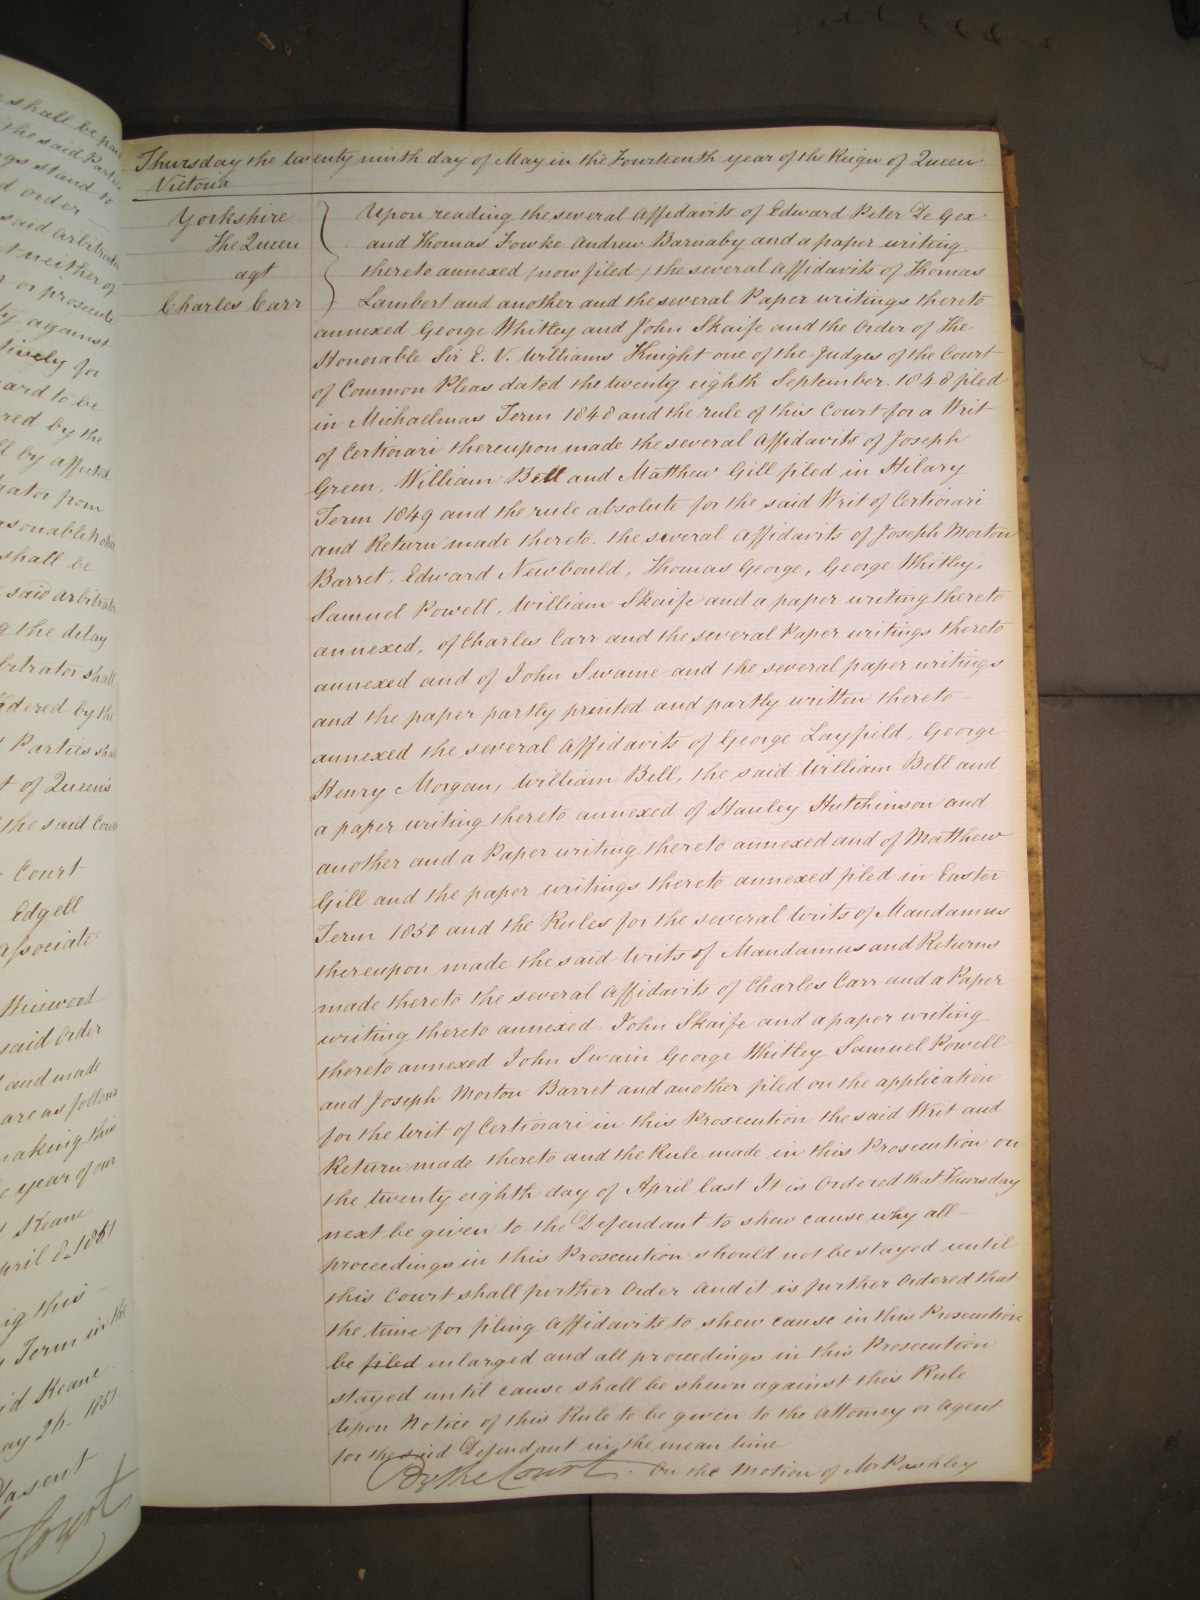 shall be
the said Parties
stand to
order
said arbitrator
neither of
or prosecute
against
tively for
ard to be
red by the
by affected
rator from
asonable
shall be
said arbitrator
g the delay
bitrator shall
idered by the
Parties shall
t of Queen's
the said Court
Court
Edgell
associate
Winwood
said Order
and made
are as follows
making this
year of our
Keane
April 8 1851
ig this
Term in the
id Keane
May 26 1851
Dasent
Court
Thursday the twenty ninth day of May in the Fourteenth year of the Reign of Queen
Victoria
Yorkshire
The Queen
agt
Charles Carr
Upon reading the several Affidavits of Edward Peter De Gex
and Thomas Fowke Andrew Barnaby and a paper writing
thereto annexed (now filed) the several Affidavits of Thomas
Lambert and another and the several Paper writings thereto
annexed George Whitley and John Skaife and the Order of The
Honorable Sir E. V. Williams Knight one of the Judges of the Court
of Common Pleas dated the twenty eighth September 1848 filed
in Michaelmas Term 1848 and the rule of this Court for a Writ
of Certiorari thereupon made the several Affidavits of Joseph
Green, William Bell and Matthew Gill filed in Hilary
Term 1849 and the rule absolute for the said Writ of Certiorari
and Return made thereto. the several affidavits of Joseph Morton
Barret, Edward Newbould, Thomas George, George Whitley,
Samuel Powell, William Skaife and a paper writing thereto
annexed, of Charles Carr and the several Paper writings thereto
annexed and of John Swaine and the several paper writings
and the paper partly printed and partly written thereto
annexed the several Affidavits of George Layfield, George
Henry Morgan, William Bell, the said William Bell and
a paper writing thereto annexed of Stanley Hutchinson and
another and a Paper writing thereto annexed and of Matthew
Gill and the paper writings thereto annexed filed in Easter
Term 1850 and the Rules for the several Writs of Mandamus
thereupon made the said Writs of Mandamus and Returns
made thereto the several Affidavits of Charles Carr and a Paper
writing thereto annexed. John Skaife and a paper writing
thereto annexed John Swain George Whitley Samuel Powell
and Joseph Morton Barret and another filed on the application
for the Writ of Certiorari in this Prosecution the said Writ and
Return made thereto and the Rule made in this Prosecution on
the twenty eighth day of April last It is Ordered that Thursday
next be given to the Defendant to shew cause why all
proceedings in this Prosecution should not be stayed until
this Court shall further Order And it is further Ordered that
the time for filing Affidavits to shew cause in this Prosecution
be filed enlarged and all proceedings in this Prosecution
stayed until cause shall be shewn against this Rule
Upon Notice of this Rule to be given to the Attorney or Agent
for the said Defendant in the mean time
By the Court. On the Motion of Mr Pashley